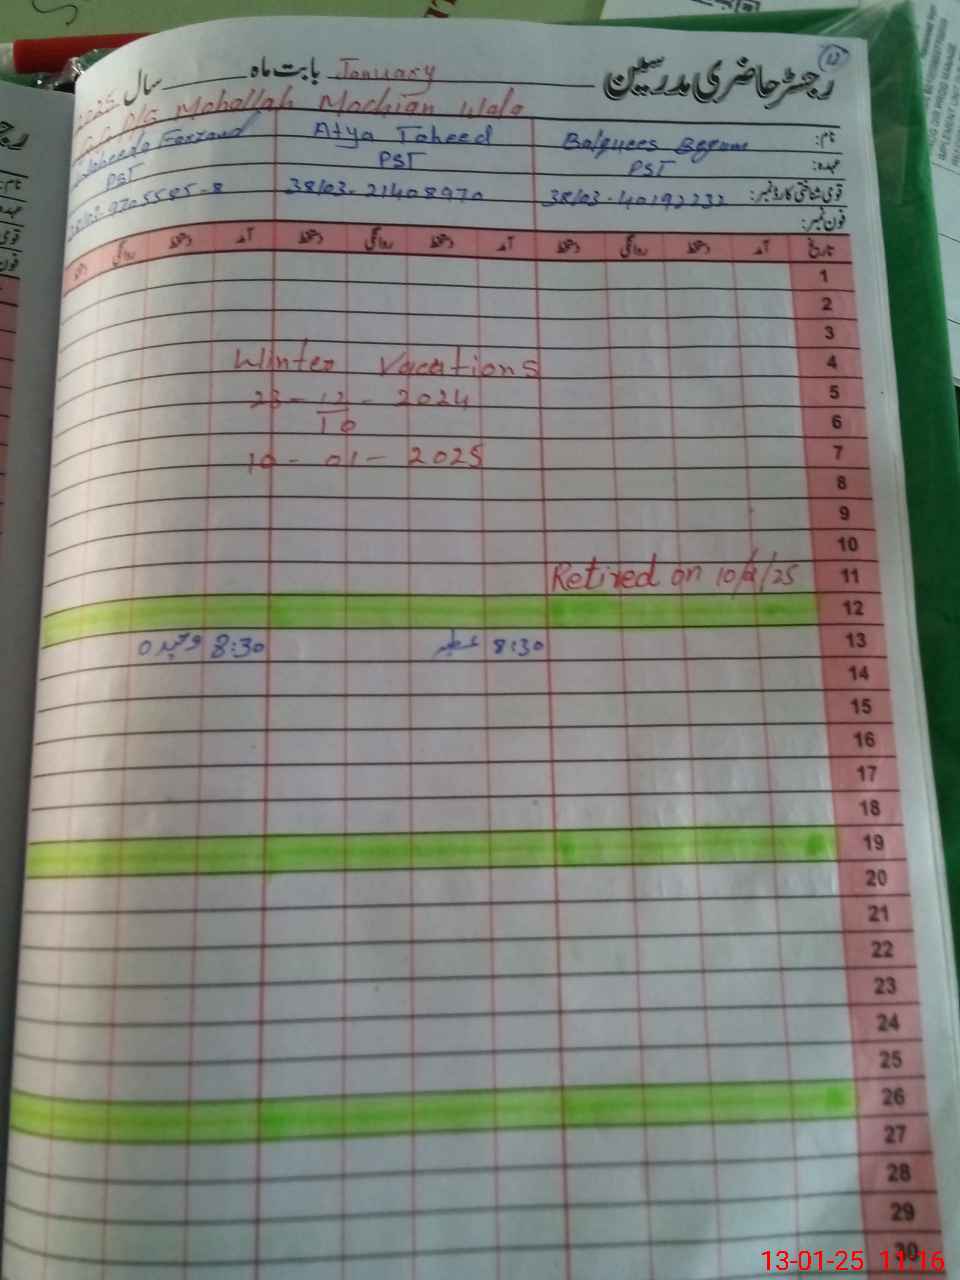 رجسٹر حاضری مدرسین بابت ماہ January سال 2025
Mohallah Mochian Wala
نام: Balquees Begum Atya Taheed
عہدہ: PST PST PST
قومی شناختی کارڈ نمبر: 38103-40192232 38103-21408970 38103-9705585-8
فون نمبر:
تاریخ آمد دستخط روانگی دستخط آمد دستخط روانگی دستخط آمد دستخط روانگی
1
2
3
4 Winter Vacations
5 23-12-2024
6 To
7 10-01-2025
8
9
10
11 Retired on
12
13 8:30 8:30 وحیدہ
14
15
16
17
18
19
20
21
22
23
24
25
26
27
28
29
30
13-01-25 11:16